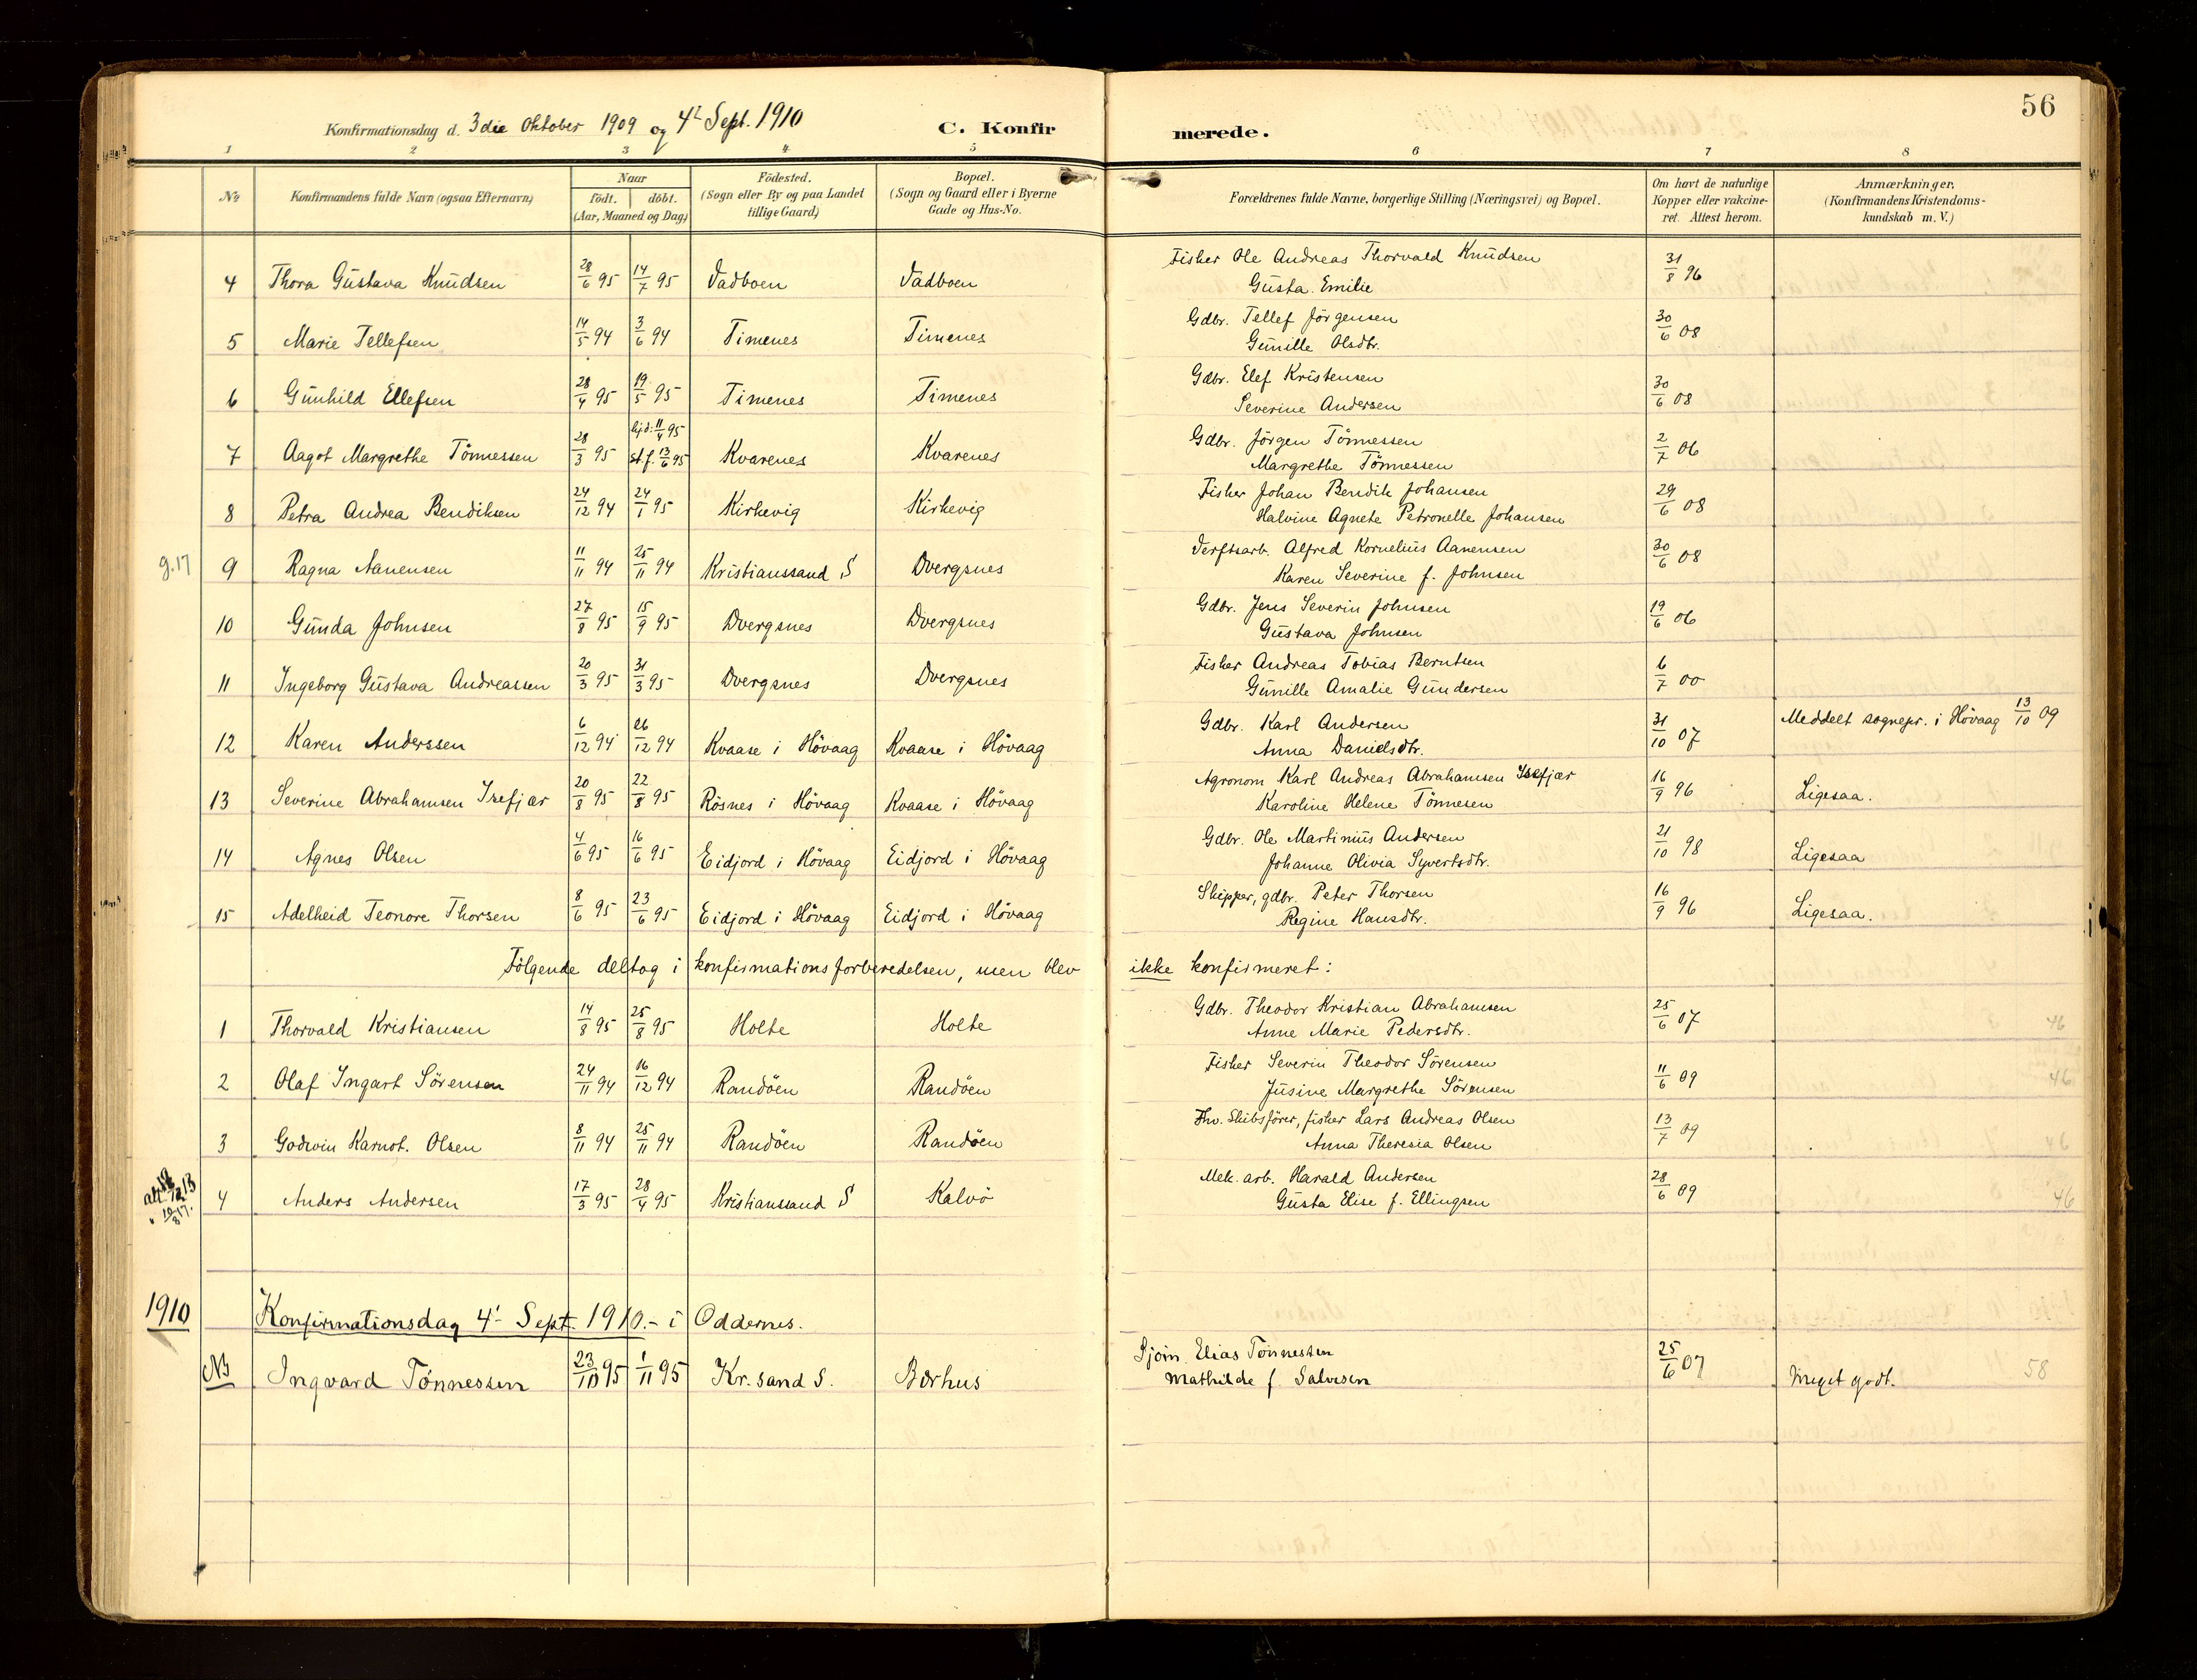 56
Konfirmationsdag d. 3die Oktober 1909 og 4de Sept. 1910 C. Konfir merede.
1 2 3 4 5 6 7 8
No Konfirmandens fulde Navn (ogsaa Efternavn) Naar født. døbt. (Aar, Maaned og Dag) Fødested. (Sogn eller By og paa Landet tillige Gaard) Bopæl. (Sogn og Gaard eller i Byerne Gade og Hus-No. Forældrenes fulde Navne, borgerlige Stilling (Næringsvei) og Bopæl. Om havt de naturlige Kopper eller vakcineret. Attest herom. Anmærkninger. (Konfirmandens Kristendomskundskab m. V.)
4 Thora Gustava Knudsen 28/6 95 14/7 95 Vadboen Vadboen Fisker Ole Andreas Thorvald Knudsen 31/8 96
Gusta. Emilie
5 Marie Tellefsen 14/5 94 3/6 94 Timenes Timenes Gdbr. Tellef Jörgensen 30/6 08
Gunille Olsdtr.
6 Gunhild Ellefsen 28/4 95 19/5 95 Timenes Timenes Gdbr. Elef Kristensen 30/6 08
Severine Andersen
7 Aagot Margrethe Tönnessen 28/3 95 hjd: 11/4 95 st.f. 13/6 95 Kvarenes Kvarenes Gdbr. Jörgen Tönnessen 2/7 06
Margrethe Tönnessen
8 Petra Andrea Bendiksen 24/12 94 24/1 95 Kirkevig Kirkevig Fisker Johan Bendik Johansen 29/6 08
Halvine Agnete Petronelle Johansen
g.17 9 Ragna Aanensen 11/11 94 25/11 94 Kristianssand S Dvergsnes Verftsarb. Alfred Kornelius Aanensen 30/6 08
Karen Severine f. Johnsen
10 Gunda Johnsen 27/8 95 15/9 95 Dvergsnes Dvergsnes Gdbr. Jens Severin Johnsen 19/6 06
Gustava Johnsen
11 Ingeborg Gustava Andreassen 20/3 95 31/3 95 Dvergsnes Dvergsnes Fisker Andreas Tobias Berntsen 6/7 00
Gunille Amalie Gundersen
12 Karen Anderssen 6/12 94 26/12 94 Kvaase i Hövaag Kvaase i Hövaag Gdbr. Karl Andersen 31/10 07 Meddelt sognepr. i Hövaag 13/10 09
Anna Danielsdtr.
13 Severine Abrahamsen Isefjær 20/8 95 22/8 95 Rösnes i Hövaag Kvaase i Hövaag Agronom Karl Andreas Abrahamsen Isefjær 16/9 96 Ligesaa.
Karoline Helene Tönnesen
14 Agnes Olsen 4/6 95 16/6 95 Eidjord i Hövaag Eidjord i Hövaag Gdbr. Ole Martinius Andersen 21/10 98 Ligesaa
Johanne Olivia Syvertsdtr.
15 Adelheid Teonore Thorsen 8/6 95 23/6 95 Eidjord i Hövaag Eidjord i Hövaag Skipper, gdbr. Peter Thorsen 16/9 96 Ligesaa.
Regine Hansdtr.
Fölgende deltog i konfirmationsforberedelsen, men blev ikke konfirmeret:
1 Thorvald Kristiansen 14/8 95 25/8 95 Holte Holte Gdbr. Theodor Kristian Abrahamsen 25/6 07 46
Anne Marie Pedersdtr.
2 Olaf Ingart Sörensen 24/11 94 16/12 94 Randöen Randöen Fisker Severin Theodor Sörensen 11/6 09 46
Jusine Margrethe Sörensen
3 Godwin Karnot. Olsen 8/11 94 25/11 94 Randöen Randöen Fhv. Skibsförer, fisker Lars Andreas Olsen 13/7 09 46
Anna Theresia Olsen
4 Anders Andersen 17/3 95 28/4 95 Kristianssand S Kalvö Mek. arb. Harald Andersen 28/6 09 46
Gusta Elise f. Ellingsen
1910 Konfirmationsdag 4' Sept. 1910.- i Oddernes.
NB Ingvard Tönnessen 23/10 95 1/11 95 Kr.sand S. Bærhus Sjöm. Elias Tönnessen 25/6 07 Meget godt. 58
Mathilde f. Salvesen